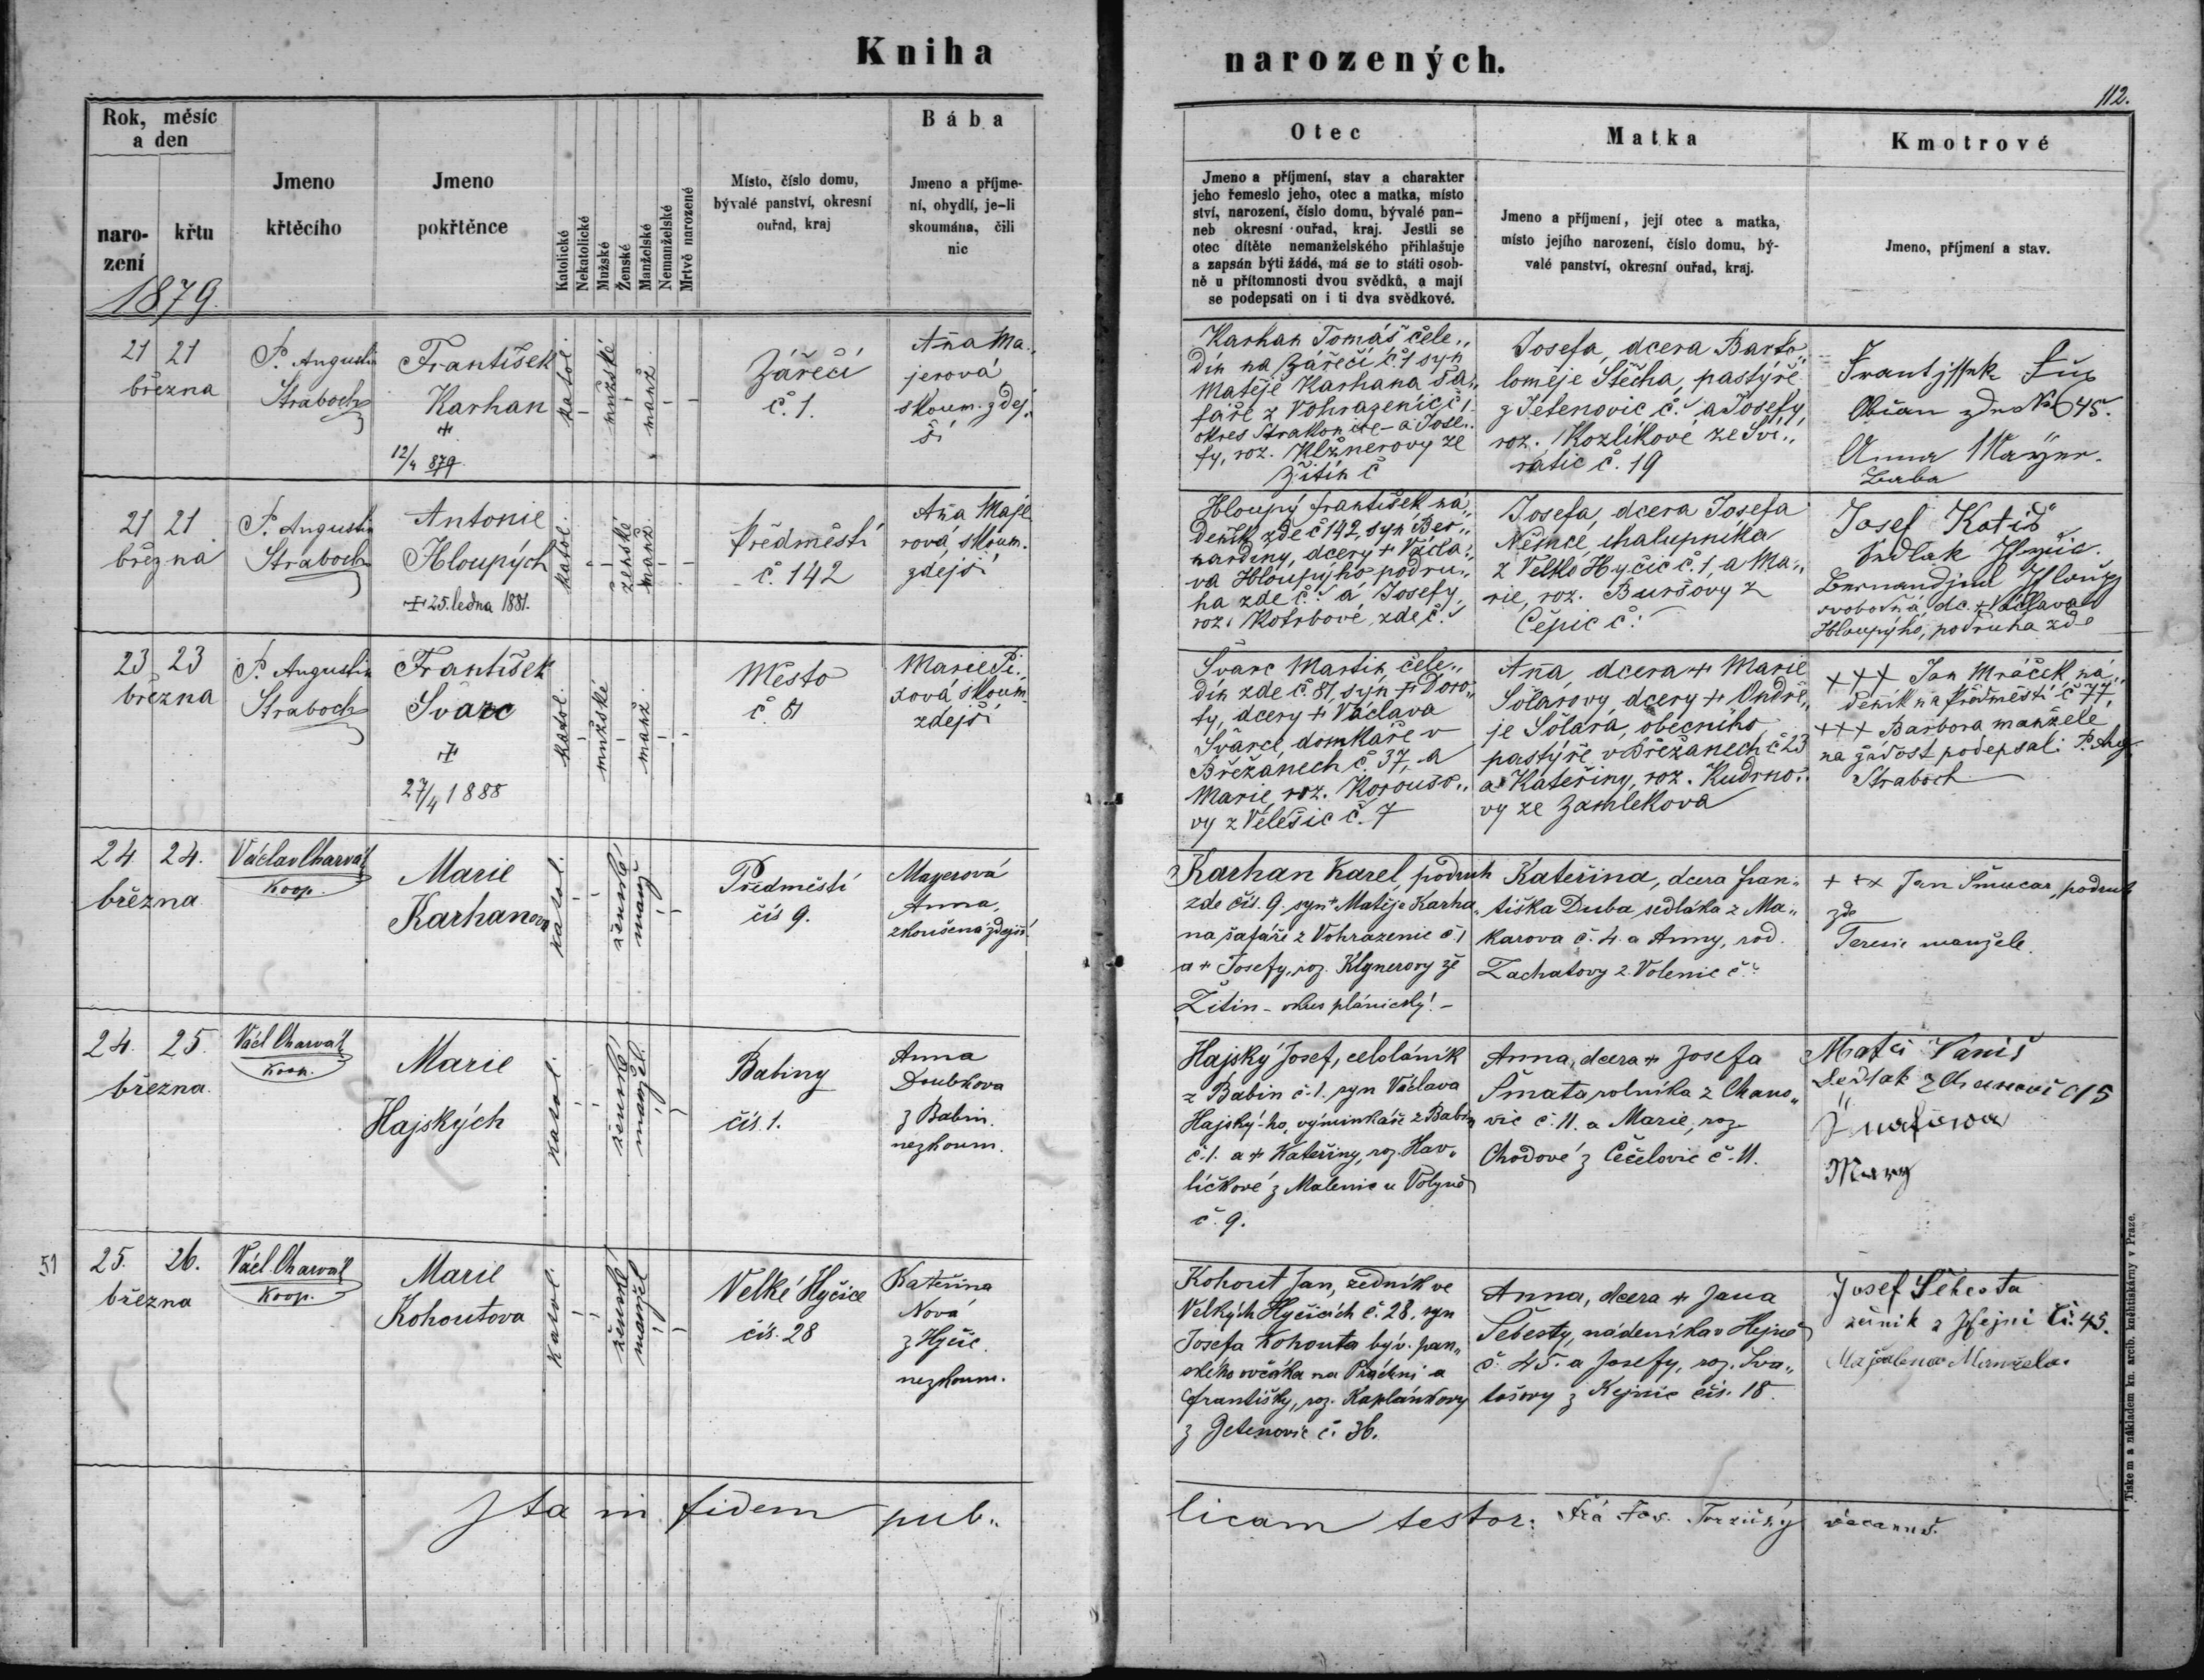 Kniha
narozených.
112.
Rok, měsíc
a den
naro-
zení
křtu
1879
Jmeno
křtěcího
Jmeno
pokřtěnce
Katolické
Nekatolické
Mužské
Ženské
Manželské
Nemanželské
Mrtvě narozené
Místo, číslo domu,
bývalé panství, okresní
ouřad, kraj
Bába
Jmeno a příjme-
ní, obydlí, je-li
skoumána, čili
nic
Otec
Jmeno a příjmení, stav a charakter
jeho řemeslo jeho, otec a matka, místo
ství, narození, číslo domu, bývalé pan-
neb okresní ouřad, kraj. Jestli se
otec dítěte nemanželského přihlašuje
a zapsán býti žádá, má se to státi osob-
ně u přítomnosti dvou svědků, a mají
se podepsati on i ti dva svědkové.
Matka
Jmeno a příjmení, její otec a matka,
místo jejího narození, číslo domu, bý-
valé panství, okresní ouřad, kraj.
Kmotrové
Jmeno, příjmení a stav.
21 21
března
P. Augustin
Straboch
František
Karhan
+
12/4 879
katol.
mužské
manž.
Zářečí
č. 1.
Aña Ma„
jerová
skoum. zdej„
ší
Karhan Tomáš čele„
dín na Zářečí č. 1 syn
Matěje Karhana ša„
fáře z Vohrazenic č 1
okres Strakonice - a Jose„
fy, roz. Klznerovy ze
Žitín č
Josefa, dcera Barto„
loměje Stěcha, pastýře
z Jetenovic č. a Josefy,
roz. Kozlíkové ze Svi„
ratic č. 19
Obcan zde No 645.
Anna Mayer.
Baba
21 21
března
P. Augustin
Straboch
Antonie
Hloupých
+ 25. ledna 1881.
katol.
ženské
manž.
Předměstí
č. 142
Aña Maje
rová skoum.
zdejší
Hloupý František ná„
deník zde č 142, syn Ber„
nardiny, dcery + Václa„
va Hloupýho podru„
ha zde č. a Josefy,
roz. Kotrbové, zde č.
Josefa, dcera Josefa
Němce, chalupníka
z Velkých Hyčic č. 1, a Ma„
rie, roz. Buršovy z
Čepic č.
Josef Kotiš
Sedlak Hyčic.
Bernardina Hloupy
svobodná dc. + Václava
Hloupýho, podruha zde
23 23
března
P. Augustin
Straboch
František
Švarc
+
27/4 1888
katol.
mužské
manž.
Město
č. 81
Marie Pi„
xová skoum.
zdejší
Švarc Martin, čele„
dín zde č. 81 syn + Doro„
ty, dcery + Václava
Švarce, domkáře v
Břežanech č. 37, a
Marie, roz. Koroušo„
vy z Velešic č. 7
Aña, dcera + Marie
Šolarovy, dcery + Ondře„
je Šolara, obecního
pastýře v Břežanech č 23
a Kateřiny, roz. Kudrno„
vy ze Zamlekova
+++ Jan Mráček ná„
deník na Předměstí č 77,
+++ Barbora manželé
na žádost podepsal: P. Aug.
Straboch
24 24.
března
Václav Charvát
koop.
Marie
Karhanova
katol.
ženské
manž
Předměstí
čís 9.
Mayerová
Anna,
zkoušená zdejší
Karhan Karel, podruh
zde čís. 9. syn + Matěje Karha„
na šafáře z Vohrazenic č. 1
a + Josefy, roz. Klznerovy ze
Žitín - okres plánický! -
Kateřina, dcera Fran„
tiška Duba, sedláka z Ma„
karova č. 4. a Anny, rod.
Zachatovy z Volenic č.
+ ++ Jan Šmucar, podruh
zde
Terezie manžele.
24. 25.
března.
Václ Charvát
koop.
Marie
Hajských
katol.
ženské
manžel
Babiny
čís. 1.
Anna
Doubkova
z Babin.
nezkoum.
Hajský Josef, celoláník
z Babin č. 1. syn Václava
Hajský-ho, výminkáře z Babin
č. 1. a + Kateřiny, roz. Hav„
líčkové z Malenic u Volyně
č. 9.
Anna, dcera + Josefa
Šmata rolníka z Chano„
vic č. 11. a Marie, roz.
Chodové z Čečelovic č. 11.
Matěj Vaniš
Sedlak z Chanovic č 15
Mary
51
25. 26.
března
Václ. Charvát
koop.
Marie
Kohoutova
katol.
ženské
manžel
Velké Hyčice
čís. 28
Kateřina
Nová
z Hyčic.
nezkoum.
Kohout Jan, zedník ve
Velkých Hyčicích č. 28. syn
Josefa Kohouta býv. pan„
ského ovčáka na Práchni a
Františky, roz. Kaplánkovy
z Jetenovic č. 36.
Anna, dcera + Jana
Šebesty, nádeníka v Hejné
č. 45. a Josefy, roz. Sva„
tošovy z Kejnic čís. 18.
Josef Šebesta
zedník z Hejni Č. 45.
Majdalena Manzela.
Ita in fidem pub„
licam testor:
Tiskem a nákladem kn. arcib. knihtiskárny v Praze.